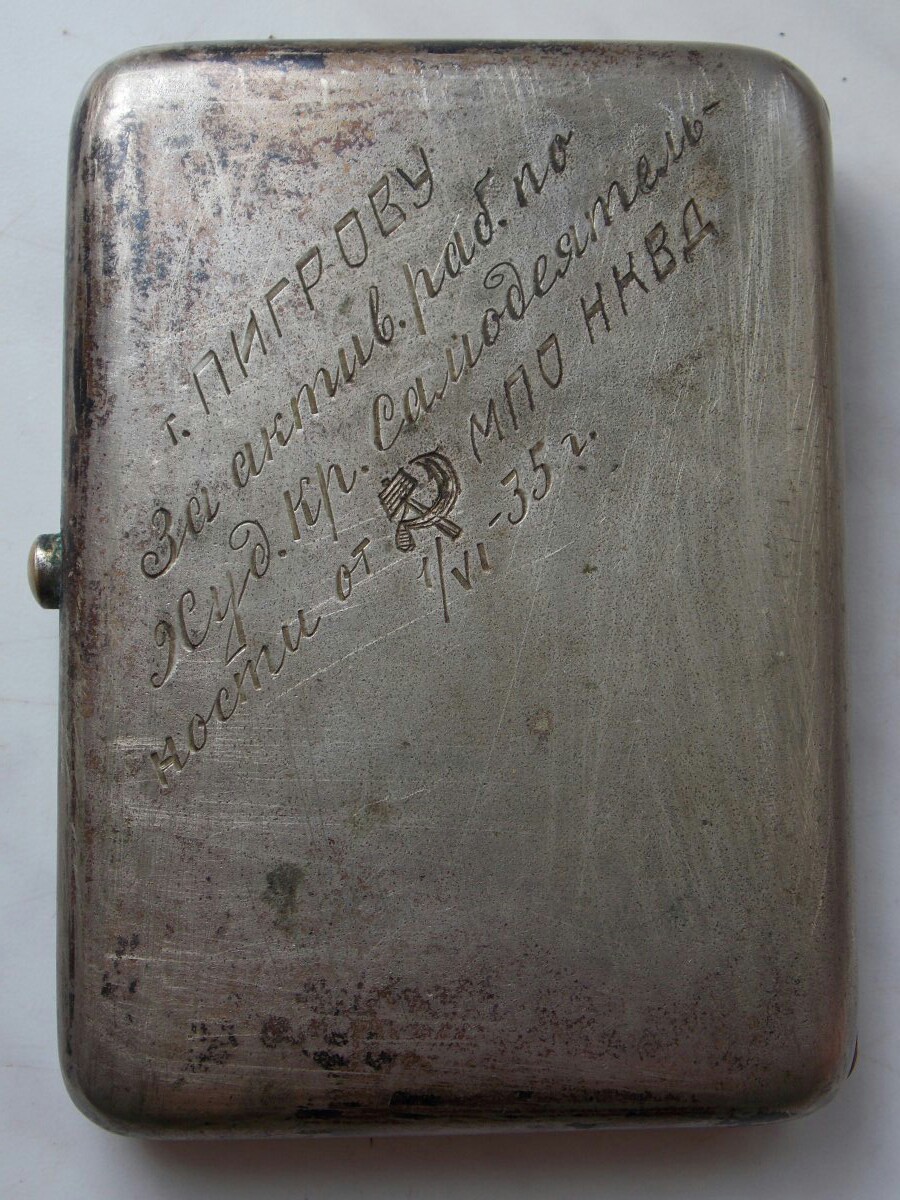 т. ПИГРОВУ
За актив. раб. по
Худ. кр. Самодеятель-
ности от МПО НКВД
1/VI -35 г.